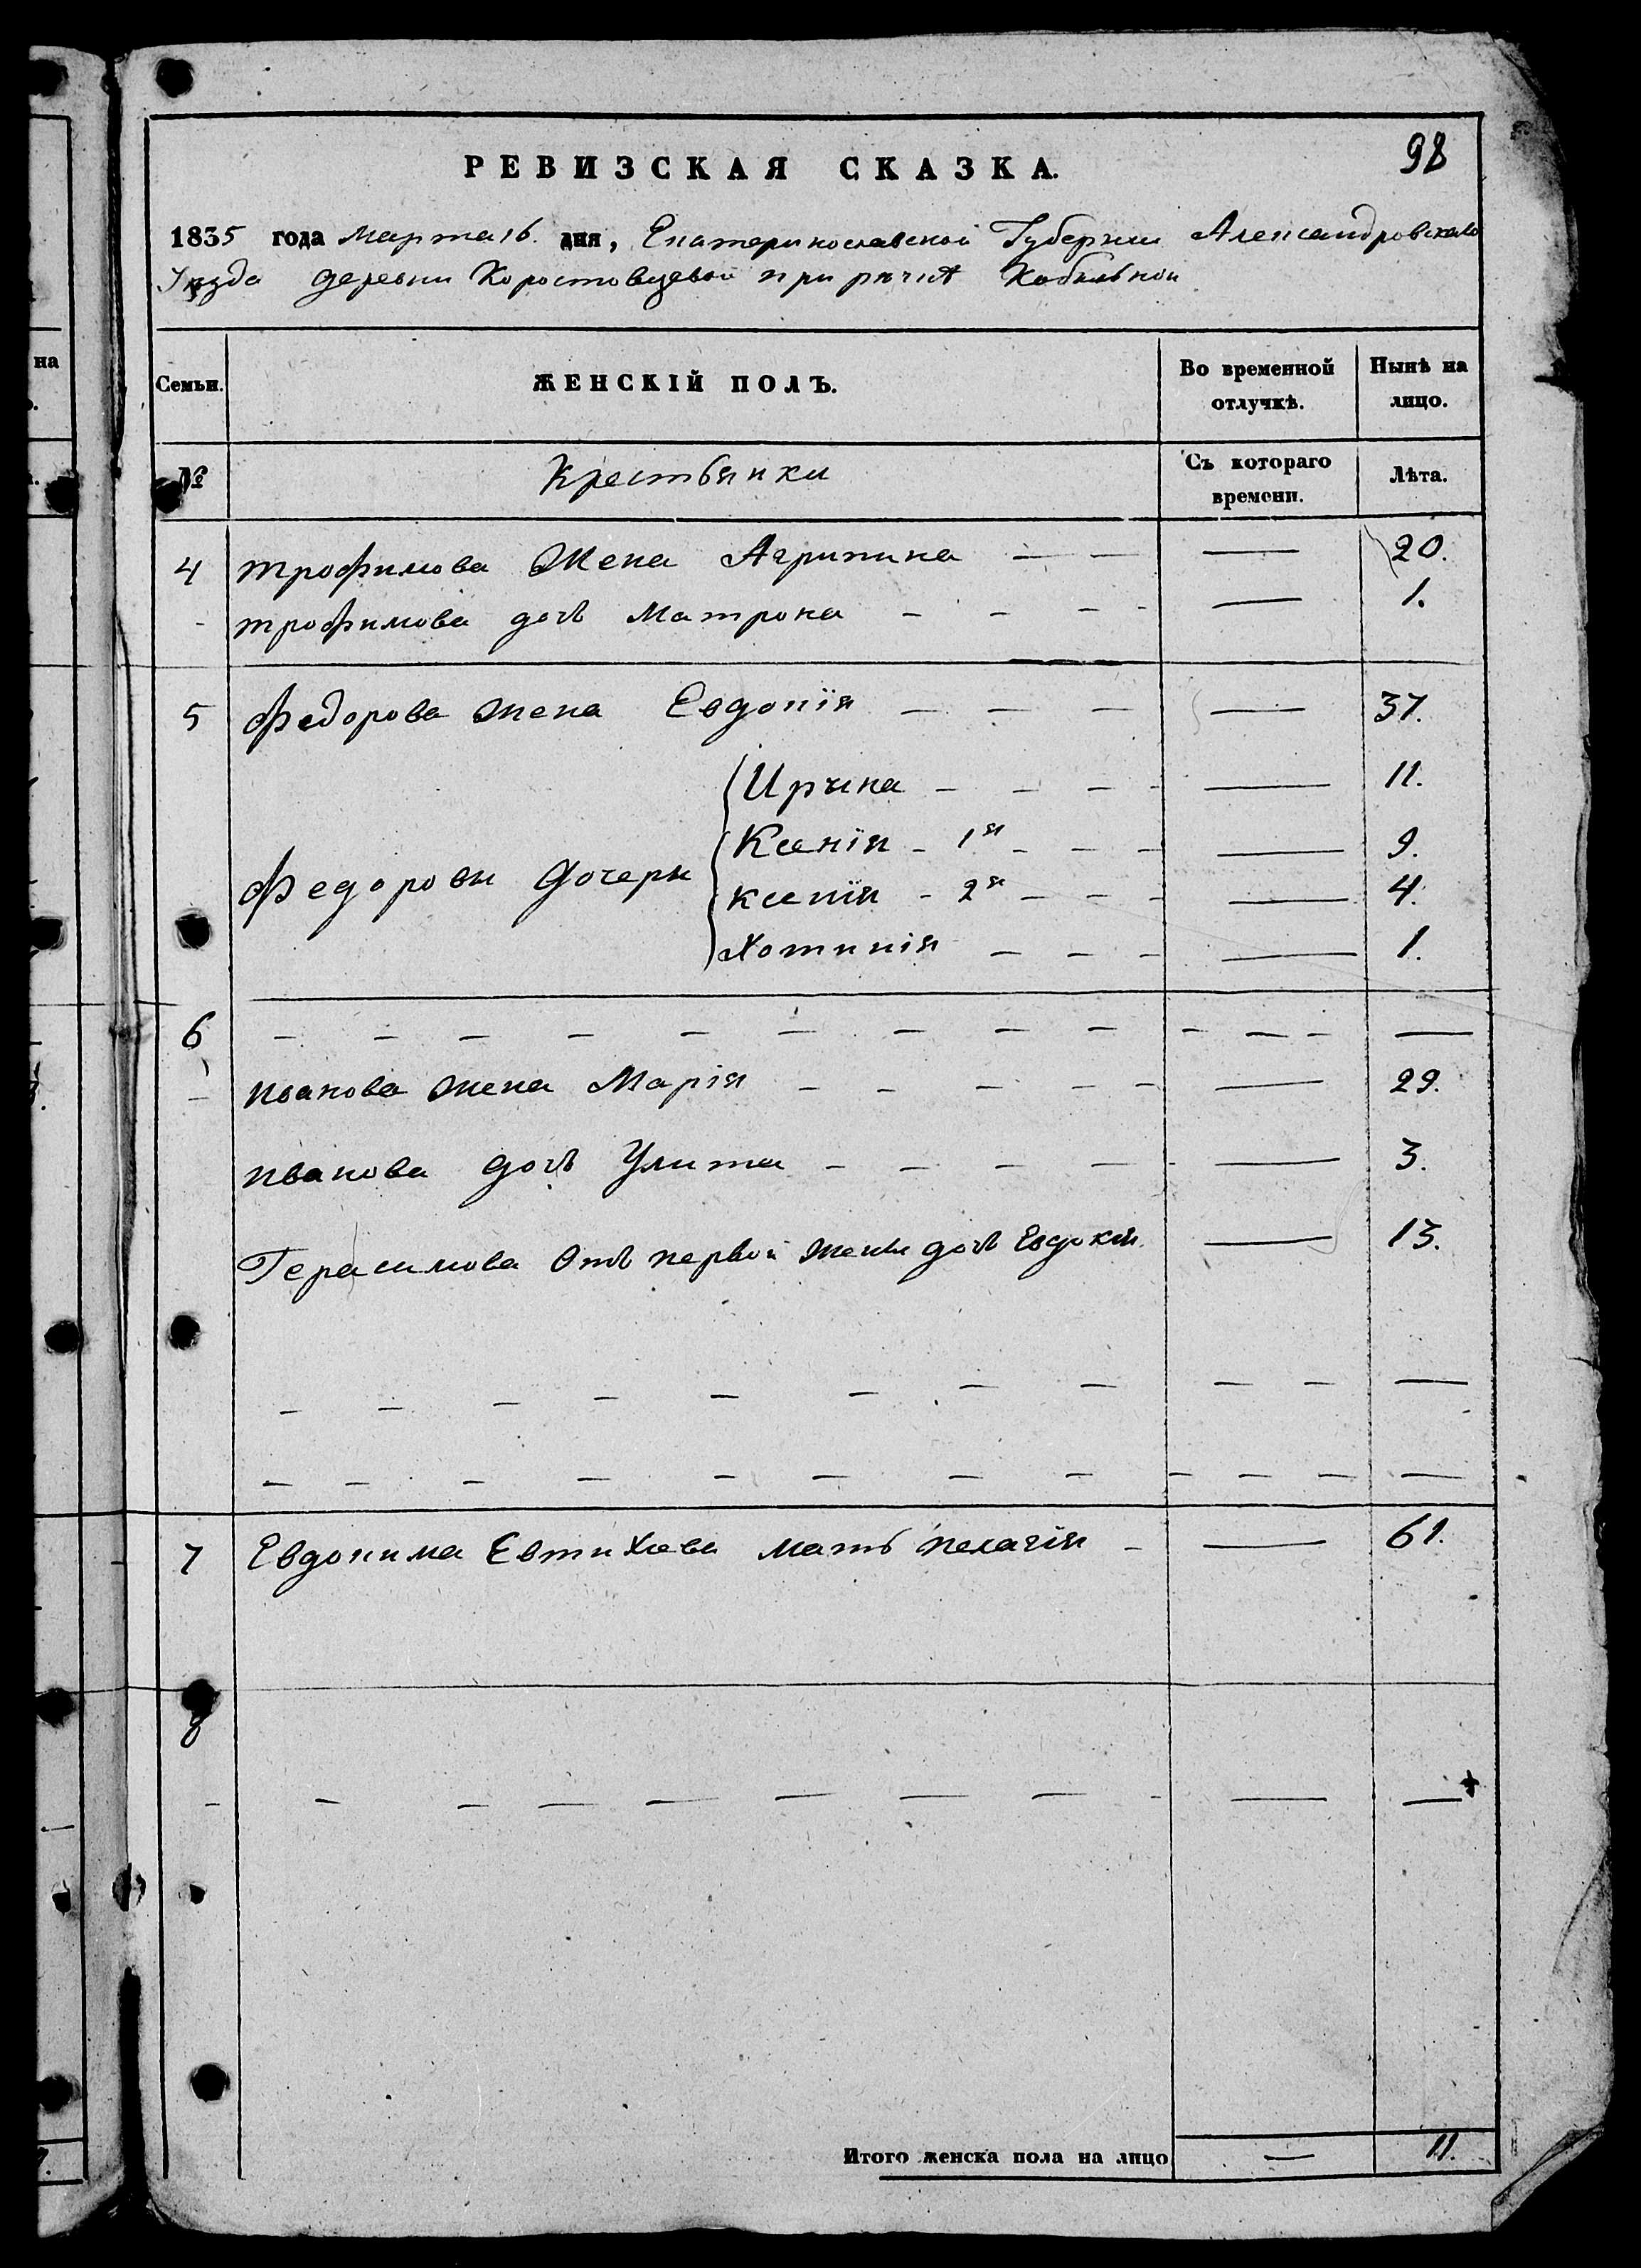 98
РЕВИЗСКАЯ СКАЗКА.
1835 года Марта 16. дня, Екатеринославской Губернии Александровскаго
Уезда деревни Коростовцевой при речкѣ Кобыльной
Семьи. ЖЕНСКІЙ ПОЛЪ. Во временной отлучкѣ. Нынѣ на лицо.
№ Крестьянки Съ котораго времени. Лѣта.
4 трофимова Жена Агрипина — — — 20.
- трофимова дочъ Матрона — - — - — 1.
5 федорова жена Евдокія — — — — 37.
Ирына — — — - — 11.
Ксенія - 1я - — — — 9.
федоровы дочери
ксенія - 2я — — - — 4.
Хотинія — — — — 1.
6 — — — — — — — — — - — - —
- иванова жена Марія — — — — - — 29.
иванова дочъ Улита — — — — — 3.
Герасимова Отъ первой жены дочъ Евдокія — 13.
— — — — — — — — — — —
— — — — — — — — — — — —
7 Евдокима Евтихіева мать пелагія - — 61.
8
- — — — — — — — - — —
Итого женска пола на лицо — 11.
на